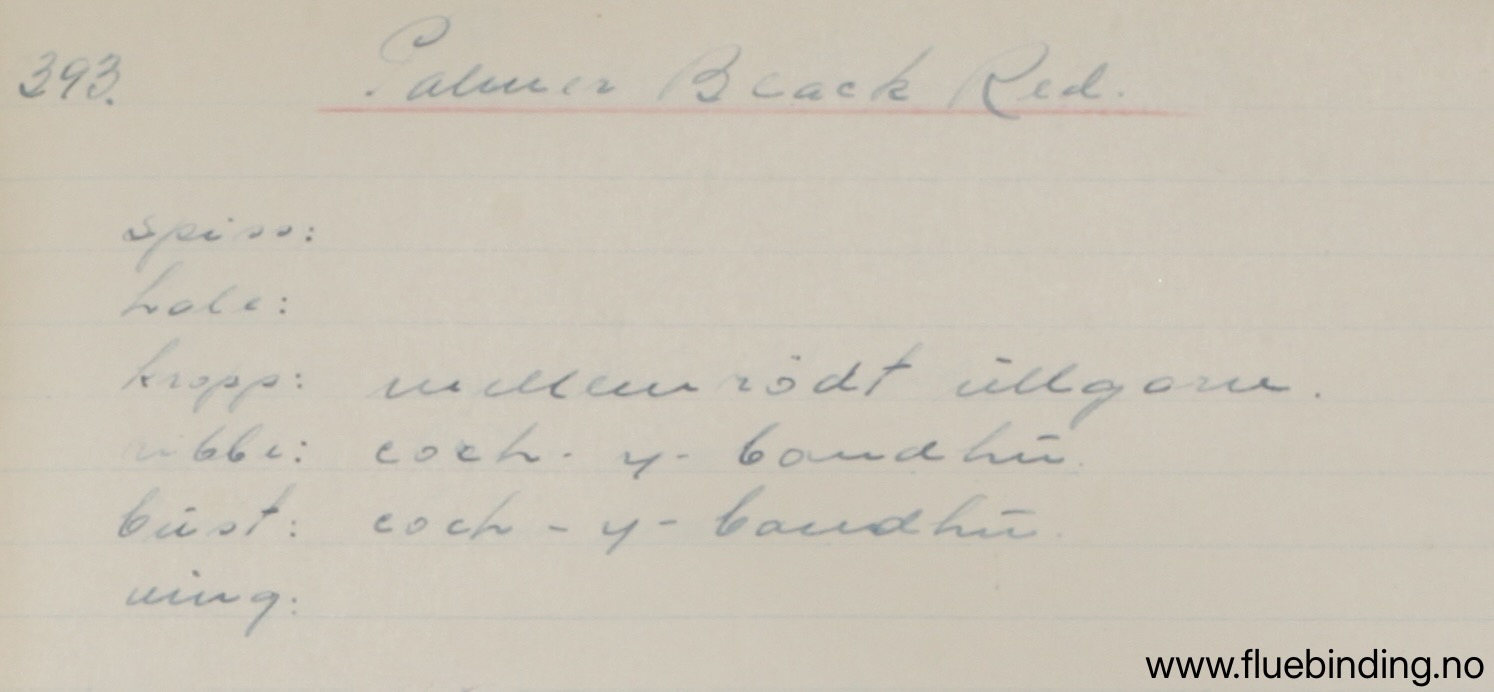 393. Palmer Black Red.
spiss:
hale:
kropp: mellemrödt ullgarn.
ribbe: coch-y-bondhu.
bust: coch-y-bondhu.
ving:
www.fluebinding.no